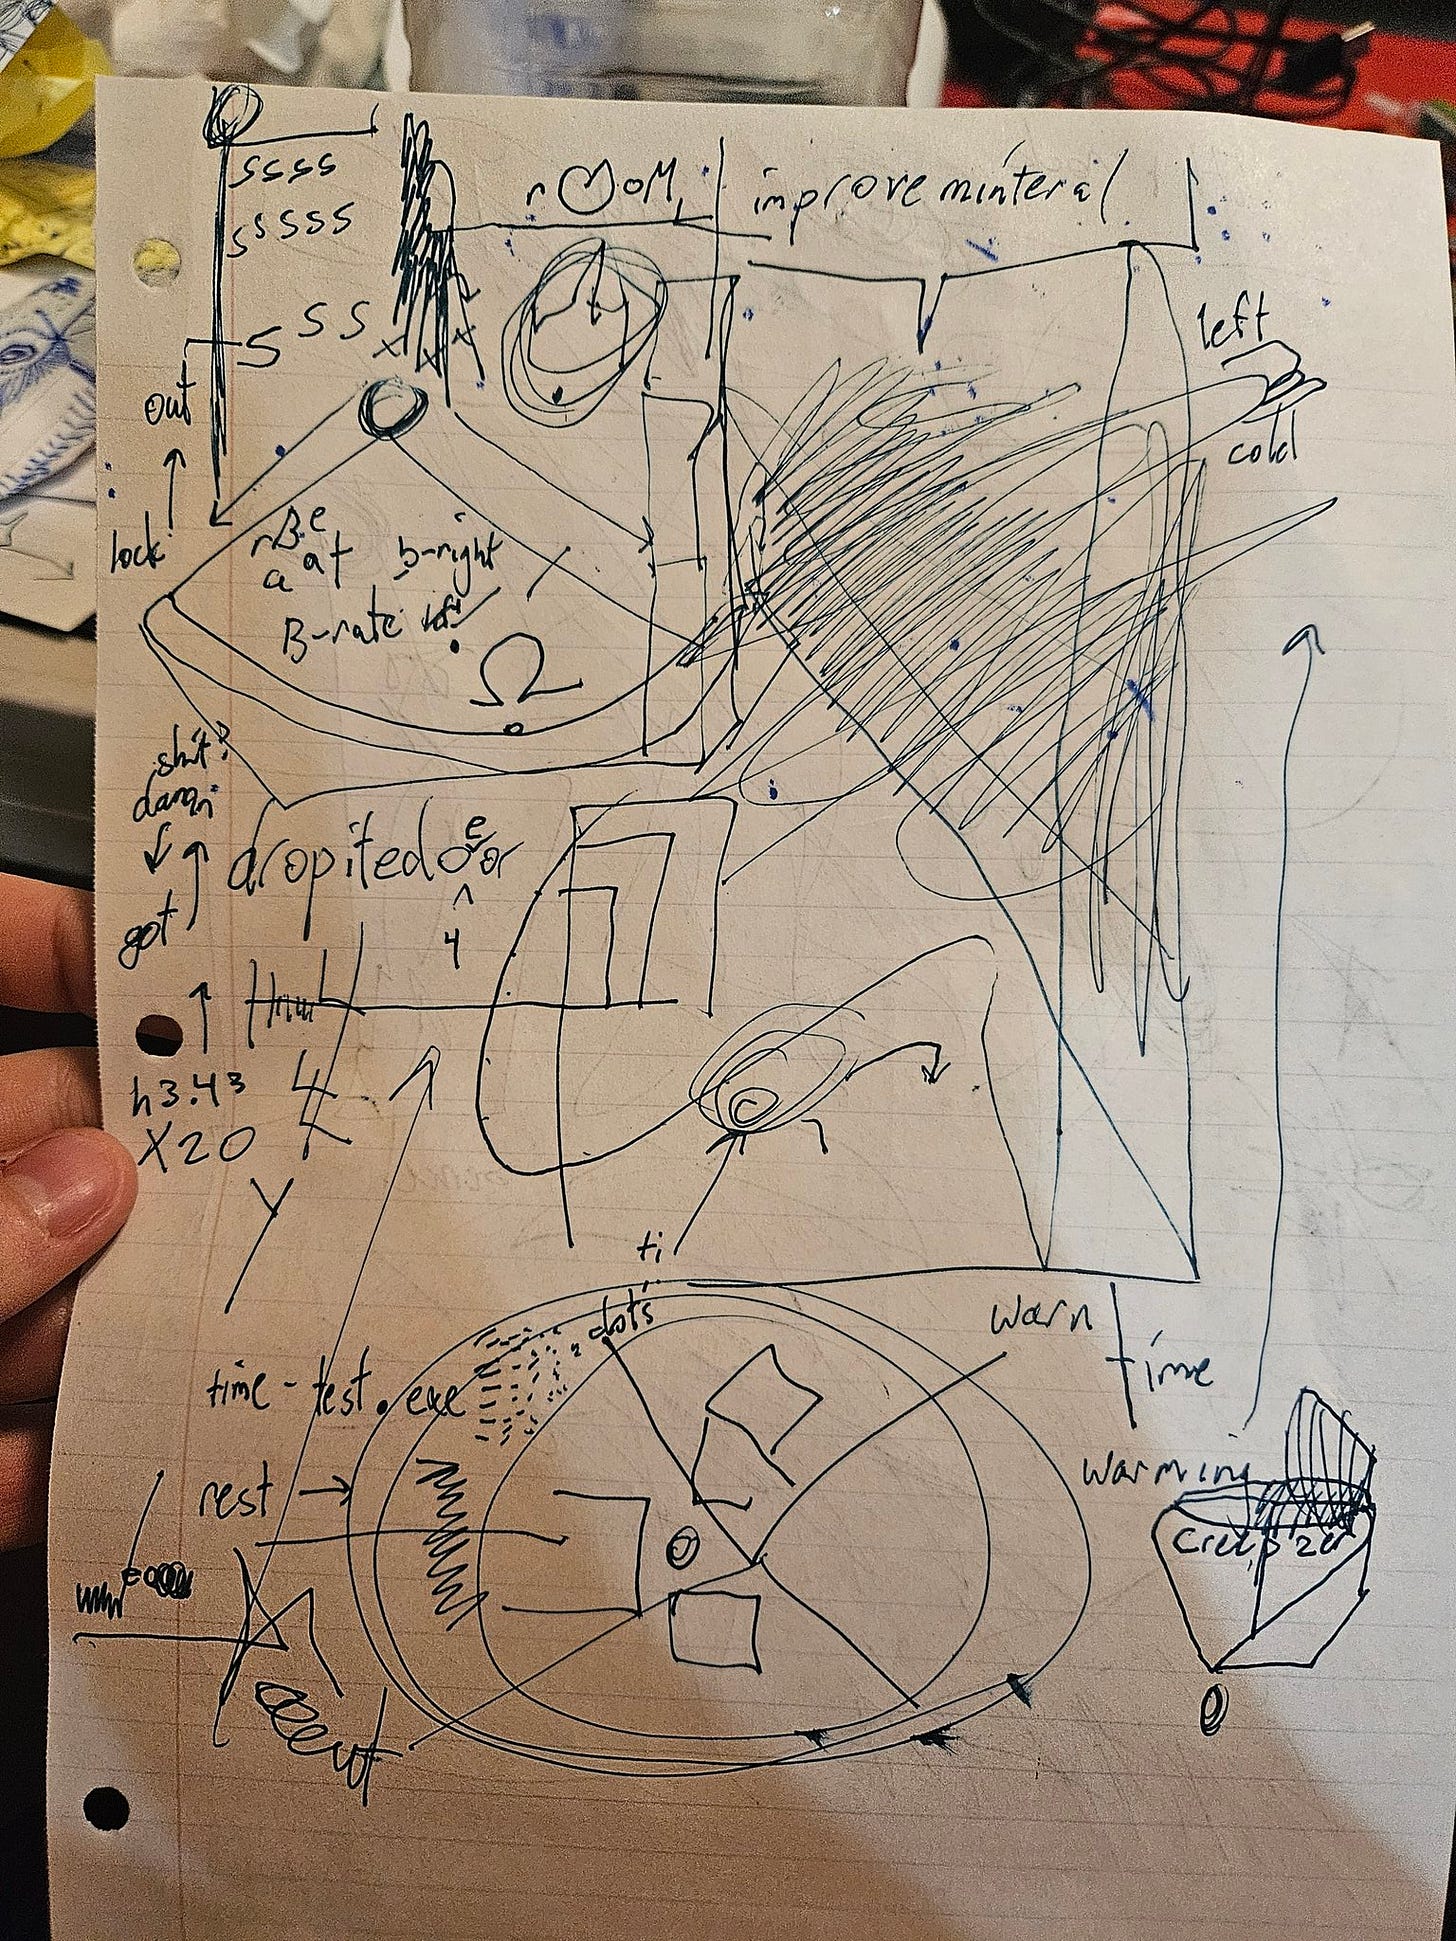 ssss
sssss
sss
improveminteral
left
cold
out
lock
b-right
B-rate
Ω
shit?
damn
got
dropitedoor
e
4
h3.43
X20
Y
ti
dots
warn
time
time-test.exe
warming
rest